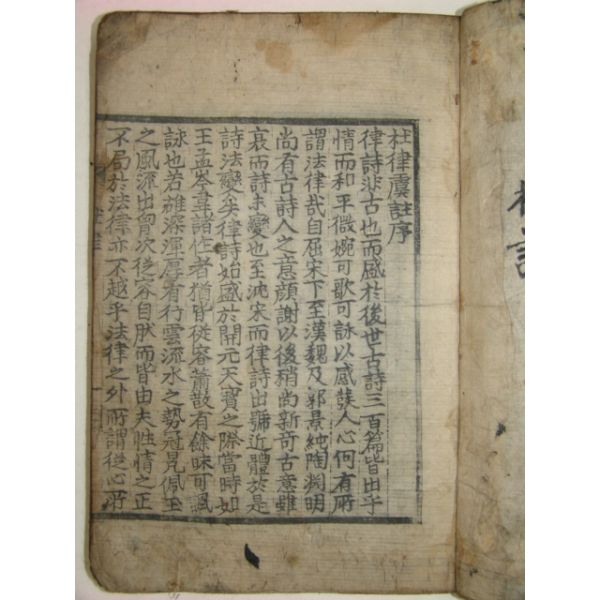 杜律虞註序
律詩非古也而盛於後世古詩三百篇皆出乎
情而和平微婉可歌可詠以感發人心何有所
謂法律哉自屈宋下至漢魏及郭景純陶淵明
尚有古詩人之意顔謝以後稍尚新奇古意雖
衰而詩未變也至沈宋而律詩出號近體於是
詩法變矣律詩始盛於開元天寶之際當時如
王孟岑韋諸作者猶皆從容蕭散有餘味可諷
詠也若雄深渾厚有行雲流水之勢冠冕佩玉
之風流出胷次從容自肰而皆由夫性情之正
不局於法律亦不越乎法律之外所謂從心所